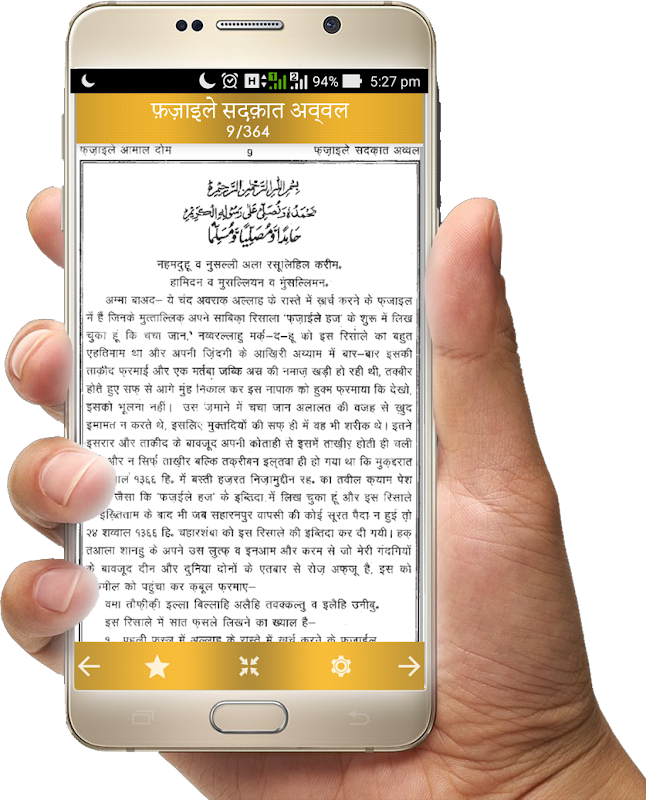 94% 5:27 pm
फ़ज़ाइले सदक़ात अव्वल
9/364
फ़ज़ाइले आमाल दोम 9 फ़ज़ाइले सदक़ात अव्वल
नहमदुहू व नुसल्ली अला रसूलिहिल करीम.
हामिदन व मुसल्लियन व मुसल्लिमन.
अम्मा बाअद- ये चंद अवराक़ अल्लाह के रास्ते में ख़र्च करने के फ़ज़ाइल
में हैं जिनके मुत्ताल्लिक़ अपने साबिक़ा रिसाला 'फ़ज़ाईले हज' के शुरू में लिख
चुका हूं कि चचा जान, नव्वरल्लाहु मर्क़-द-हू को इस रिसाले का बहुत
एहतिमाम था और अपनी ज़िंदगी के आख़िरी अय्याम में बार-बार इसकी
ताकीद फ़रमाई और एक मर्तबा जबकि अस्र की नमाज़ खड़ी हो रही थी, तक्बीर
होते हुए सफ़ से आगे मुंह निकाल कर इस नापाक को हुक्म फ़रमाया कि देखो,
इसको भूलना नहीं। उस ज़माने में चचा जान अलालत की वजह से ख़ुद
इमामत न करते थे, इसलिए मुक्तदियों की सफ़ ही में वह भी शरीक थे। इतने
इसरार और ताकीद के बावजूद अपनी कोताही से इसमें ताख़ीर होती ही चली
और न सिर्फ़ ताख़ीर बल्कि तक़रीबन इल्तवा ही हो गया था कि मुक़द्दरात
१३६६ हि. में बस्ती हज़रत निज़ामुद्दीन रह. का तवील क़याम पेश
जैसा कि 'फ़ज़ाईले हज' के इब्तिदा में लिख चुका हूं और इस रिसाले
इख़्तिताम के बाद भी जब सहारनपुर वापसी की कोई सूरत पैदा न हुई तो
२४ शव्वाल १३६६ हि. चहारशंबा को इस रिसाले की इब्तिदा कर दी गयी। हक़
तआला शानहु के अपने उस लुत्फ़ व इनआम और करम से जो मेरी गंदगियों
के बावजूद दीन और दुनिया दोनों के एतबार से रोज़ अफ़्ज़ू है, इस को
को पहुंचा कर क़बूल फ़रमाए-
वमा तौफ़ीक़ी इल्ला बिल्लाहि अलैहि तवक्कल्तु व इलैहि उनीबु.
इस रिसाले में सात फ़स्लें लिखने का ख़्याल है-
१. पहली फ़स्ल में अल्लाह के रास्ते में ख़र्च करने के फ़ज़ाईल